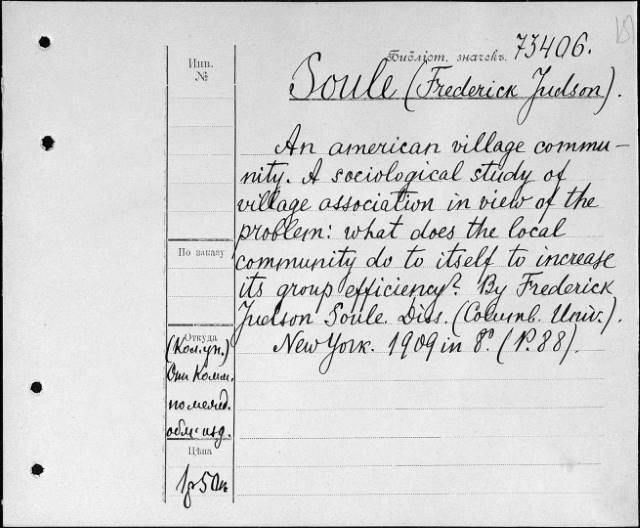 Библіот. значекъ. 73406.
Инв. №
Soule (Frederick Judson).
An american village commu-
nity. A sociological study of
village association in view of the
problem: what does the local
community do to itself to increase
its group efficiency? By Frederick
Judson Soule. Diss. (Columb. Univ.).
New York. 1909 in 8º. (P. 88).
По заказу
Откуда
(Кол. ун.)
Комм.
обм. изд.
Цѣна
1р 50к